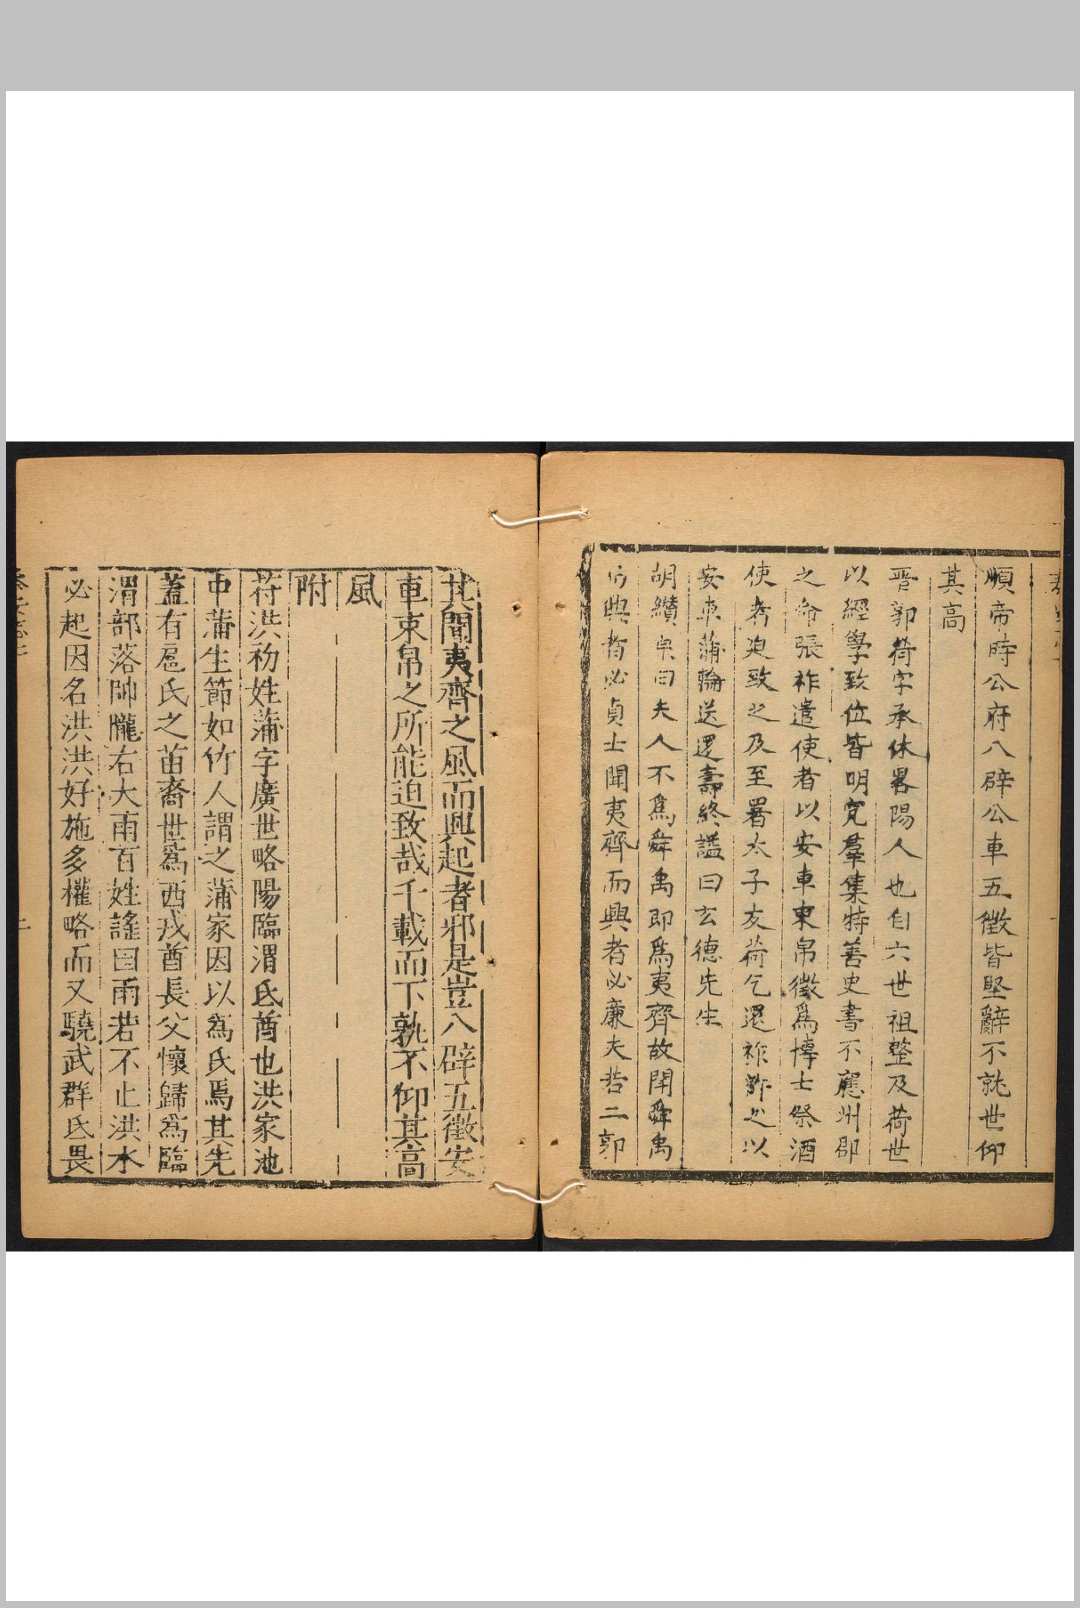 順帝時公府八辟公車五徵皆堅辭不就世仰
其高
晉郭荷字承休畧陽人也自六世祖整及荷世
以經學致位皆明究羣集特善史書不應州郡
之命張祚遣使者以安車束帛徵爲博士祭酒
使者迫致之及至署太子友荷乞還祚許之以
安車蒲輪送還壽終謚曰玄德先生
胡纘宗曰夫人不爲舜禹即爲夷齊故聞舜禹
而興者必貞士聞夷齊而興者必廉夫若二郭
其聞夷齊之風而興起者邪是豈八辟五徵安
車束帛之所能迫致哉千載而下孰不仰其高
風
附
苻洪初姓蒲字廣世略陽臨渭氐酋也洪家池
中蒲生節如竹人謂之蒲家因以爲氏焉其先
蓋有扈氏之苗裔世爲西戎酋長父懷歸爲臨
渭部落帥隴右大雨百姓謠曰雨若不止洪水
必起因名洪洪好施多權略而又驍武群氐畏